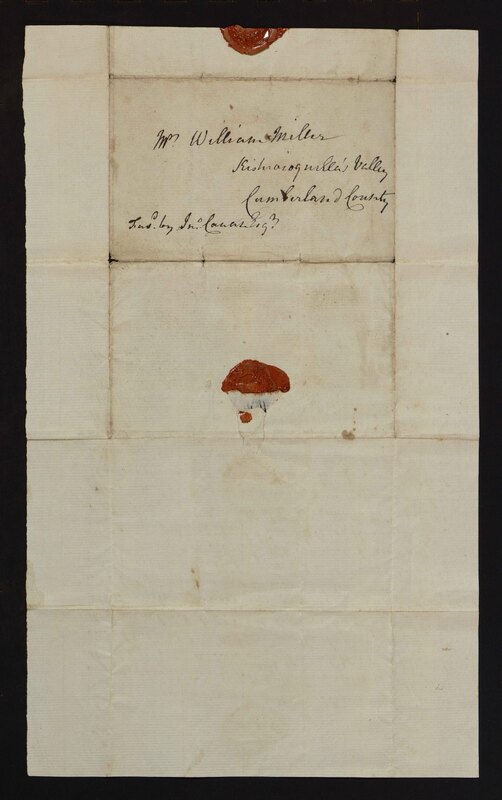 Mr. William Miller
Kishacoquilla's Valley
Cumberland County
by Jno. Cavan Esqr.